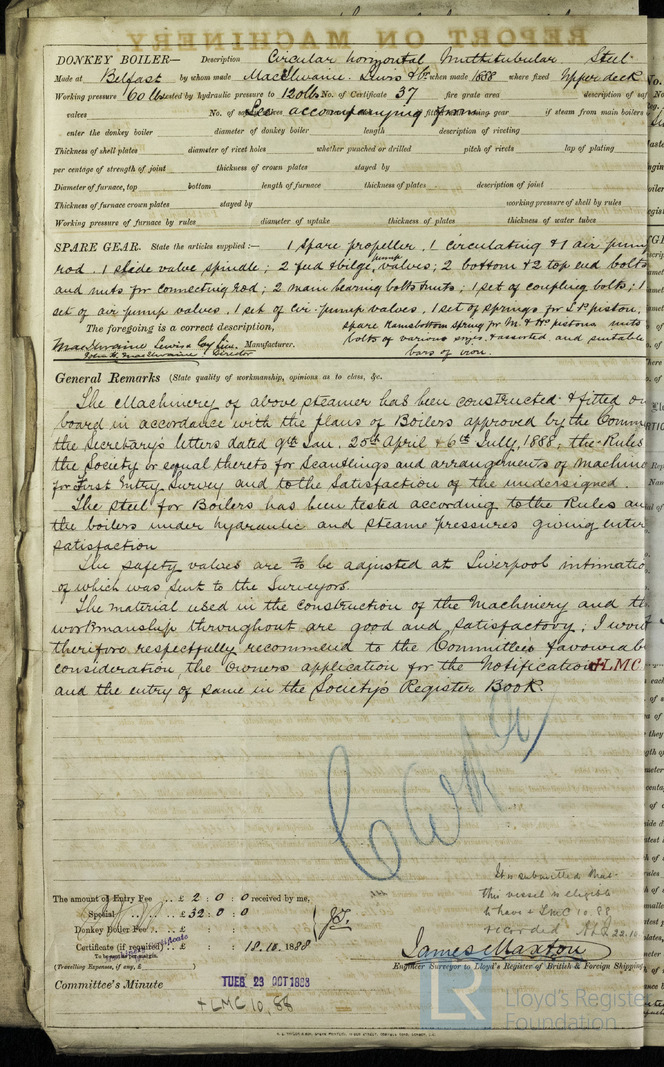 REPORT ON MACHINERY
DONKEY BOILER— Description Circular horizontal Multitubular Steel
Made at Belfast by whom made MacIlwaine Lewis & Co when made 1888 where fixed Upper deck
Working pressure 60 lbs tested by hydraulic pressure to 120 lbs No. of Certificate 37 fire grate area description of saf
valves No. of safety valves See accompanying form gear if steam from main boilers
enter the donkey boiler diameter of donkey boiler length description of riveting
Thickness of shell plates diameter of rivet holes whether punched or drilled pitch of rivets lap of plating
per centage of strength of joint thickness of crown plates stayed by
Diameter of furnace, top bottom length of furnace thickness of plates description of joint
Thickness of furnace crown plates stayed by working pressure of shell by rules
Working pressure of furnace by rules diameter of uptake thickness of plates thickness of water tubes
SPARE GEAR. State the articles supplied:— 1 spare propeller. 1 circulating & 1 air pump
rod. 1 slide valve spindle; 2 feed & bilge pump valves; 2 bottom & 2 top end bolts
and nuts for connecting rod; 2 main bearing bolts & nuts; 1 set of coupling bolts; 1
set of air pump valves. 1 set of cir. pump valves, 1 set of springs for L.P. piston.
spare Ramsbottom spring for M. & H.P. pistons nuts
The foregoing is a correct description,
bolts of various sizes & assorted and suitable
MacIlwaine Lewis & Coy Lim. Manufacturer.
John H. MacIlwaine Director
bars of iron.
General Remarks (State quality of workmanship, opinions as to class, &c.
The Machinery of above steamer has been constructed & fitted on
board in accordance with the plans of Boilers approved by the Comm
the Secretary's letters dated 9th Jan. 20th April & 6th July, 1888, the Rules
the Society or equal thereto for Scantlings and arrangements of Machine
for First Entry Survey and to the Satisfaction of the undersigned.
The steel for Boilers has been tested according to the Rules an
the boilers under hydraulic and steam pressures giving entir
satisfaction
The safety valves are to be adjusted at Liverpool intimatio
of which was sent to the Surveyors.
The material used in the construction of the Machinery and th
workmanship throughout are good and satisfactory; I woul
therefore respectfully recommend to the Committee's favourab
consideration the Owners application for the Notification +LMC
and the entry of same in the Society's Register Book.
It is submitted that
this vessel is eligible
to have + LMC 10.88
recorded 22.10.
The amount of Entry Fee .. £ 2 : 0 : 0 received by me,
Special .. .. £ 32 : 0 : 0
Donkey Boiler Fee .. £ : :
Certificate (if required) .. £ : : 18.10.1888
(Travelling Expenses, if any, £ )
James Maxton
Engineer Surveyor to Lloyd's Register of British & Foreign Shipping
Committee's Minute
TUES 23 OCT 1888
+ LMC 10,88
LR
Lloyd's Registe
Foundation